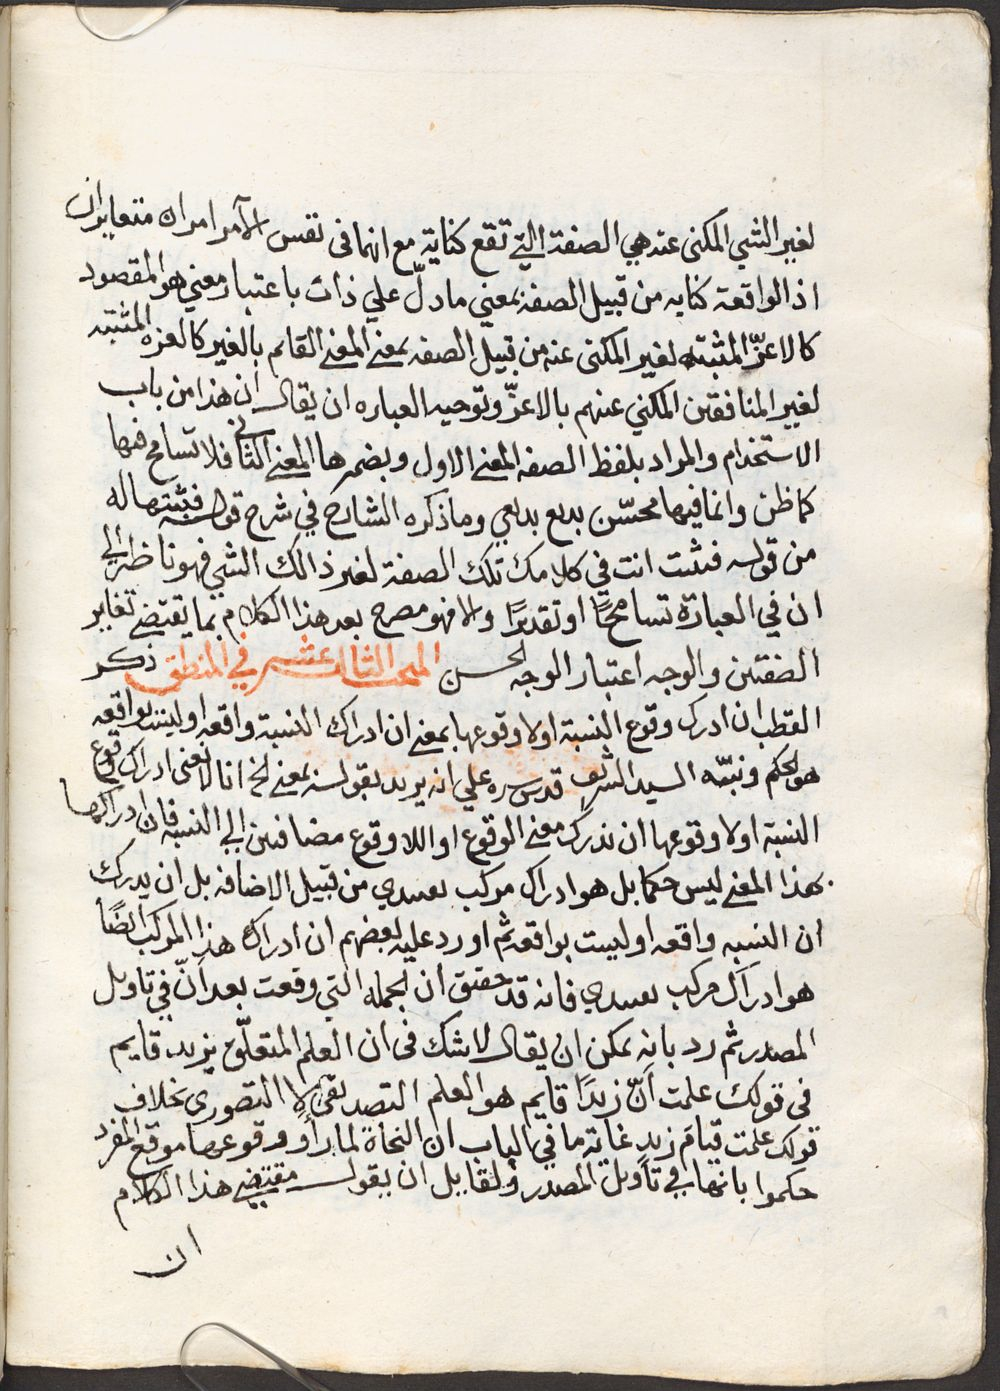 لغير الشي المكنى عنه هي الصفة التي تقع كناية مع انهما في نفس الآمر امران متغايران
اذ الواقعة كنايه من قبيل الصفه بمعني ما دلّ علي ذات باعتبار معني هو المقصود
كالاعزّ المثبته لغير المكنى عنه من قبيل الصفه بمعنى المعنى القايم بالغير كالعزه المثبته
لغير المنافقين المكني عنهم بالاعزّ وتوجيه العباره ان يقال ان هذا من باب
الاستخدام والمراد بلفظ الصفه المعنى الاول وبضميرها المعنى الثاني فلا تسامح فيها
كما ظن وانما فيها محسّن بديع بديعي وما ذكره الشارح في شرح قوله فتثبتها له
من قوله فتثبت انت في كلامك تلك الصفة لغير ذالك الشي فهو ناظر الي
ان في العبارة تسامحًا او تقديرًا والا فهو مصرح بعد هذا الكلام بما يقتضي تغاير
الصفتين والوجه اعتبار الوجه لحسن المبحث الثالث عشر في المنطق ذكر
القطب ان ادرك وقوع النسبة اولا وقوعها بمعنى ان ادراك النسبة واقعه او ليست بواقعه
هو الحكم ونبّه السيد الشريف قدس سره علي انه يريد بقوله بمعنى الخ انا لا نعنى ادراك وقوع
النسبة اولا وقوعها ان ندرك معنى الوقوع او اللا وقوع مضافين الي النسبه فان ادراكهما
بهذا المعنى ليس حكما بل هو ادراك مركب تقييدي من قبيل الاضافه بل ان يدرك
ان النسبه واقعه او ليست بواقعه ثم اورد عليه بعضهم ان ادراك هذا المركب ايضًا
هو ادراك مركب تقييدي فانه قد حقق ان الجمله التي وقعت بعد انّ في تاويل
المصدر ثم رد بانه يمكن ان يقال لا شك في ان العلم المتعلّق بزيد قايم
في قولك علمت انّ زيدًا قايم هو العلم التصديقي لا التصوري بخلاف
قولك علمت قيام زيد غاية ما في الباب ان النحاة لما رأو وقوعها موقع المفرد
حكموا بانها في تأويل المصدر ولقايل ان يقول مقتضي هذا الكلام
ان